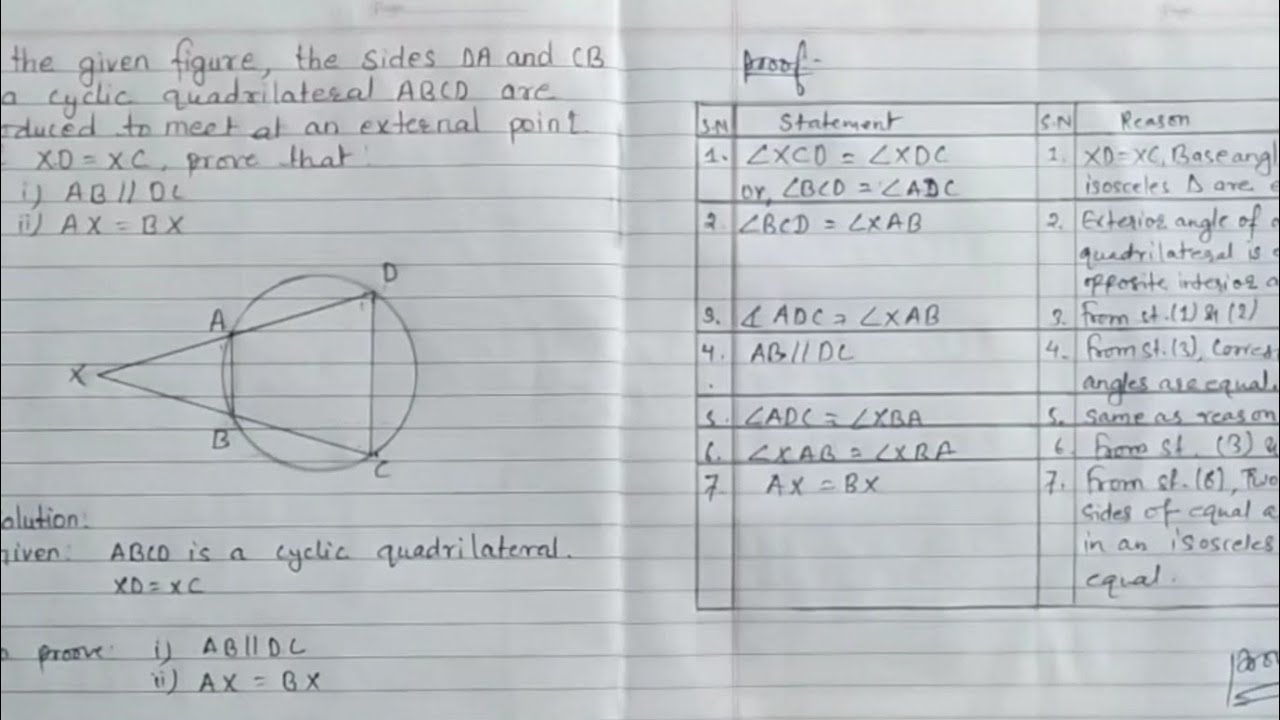 the given figure, the sides DA and CB
a cyclic quadrilateral ABCD are
duced to meet at an external point.
XD = XC, prove that:
i) AB // DC
ii) AX = BX
D
A
X
B
C
olution:
given: ABCD is a cyclic quadrilateral.
XD = XC
proove: i) AB || DC
ii) AX = BX
Proof:-
S.N Statement S.N Reason
1. ∠XCD = ∠XDC 1. XD = XC, Base angl
or, ∠BCD = ∠ADC isosceles Δ are
2. ∠BCD = ∠XAB 2. Exterior angle of
quadrilateral is
opposite interior a
3. ∠ADC = ∠XAB 3. From st. (1) & (2)
4. AB // DC 4. From st. (3), Corres
angles are equal.
5. ∠ADC = ∠XBA 5. same as reason
6. ∠XAB = ∠XBA 6. From st. (3) &
7. AX = BX 7. From st. (6), Two
sides of equal a
in an isosceles
equal.
Prov